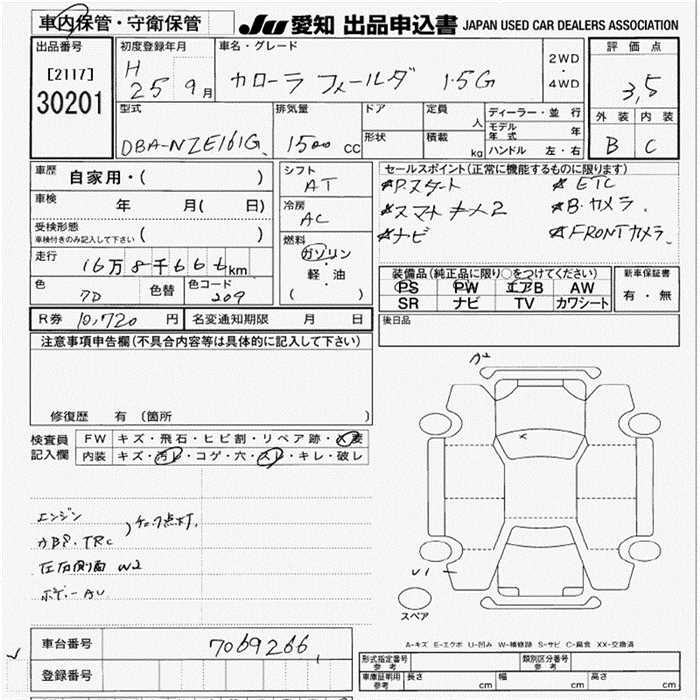 車内保管・守衛保管
JU 愛知 出品申込書 JAPAN USED CAR DEALERS ASSOCIATION
出品番号
[2117]
30201
初度登録年月
H 25 9月
車名・グレード
カローラ フィールダ 1.5G
2WD
・
4WD
評価点
3,5
外装 内装
B C
型式
DBA-NZE161G
排気量
1500 cc
ドア
形状
定員 人
積載 kg
ディーラー・並 行
モデル年式 年
ハンドル 左・右
車歴
自家用・( )
車検 年 月( 日)
受検形態
車検付きのみ記入して下さい ( )
走行 16万8千666km
色 7D 色替 色コード 209
シフト
AT
冷房
AC
燃料
ガソリン
・
軽・油
( )
セールスポイント(正常に機能するものに限ります)
☆P.スタート ☆ETC
☆スマートキー2 ☆B.カメラ.
☆ナビ ☆FRONTカメラ.
装備品(純正品に限り○をつけてください)
PS PW エアB AW
SR ナビ TV カワシート
新車保証書
有・無
R券 10,720 円 名変通知期限 月 日
後日品
注意事項申告欄(不具合内容等は具体的に記入して下さい)
修復歴 有(箇所 )
検査員記入欄
FW キズ・飛石・ヒビ割・リペア跡・×要
内装 キズ・汚レ・コゲ・穴・スレ・キレ・破レ
エンジン
ABS.TRC
チェック点灯.
左右側面 W2
ボデーAU
A2
U1
スペア
A-キズ E-エクボ U-凹み W-補修跡 S-サビ C-腐食 XX-交換済
車台番号 7069266
登録番号
形式指定番号 参考
類別区分番号 参考
車庫証明用 参考 長さ cm 幅 cm 高さ cm